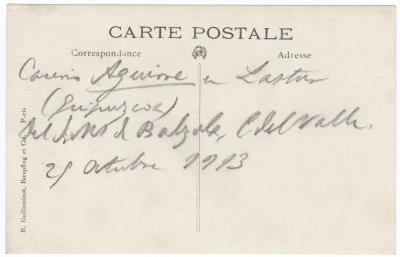 CARTE POSTALE
Correspondance Adresse
Caserio Aguirre en Lastur
(Guipuzcoa)
Del de Balzola, C. del Valle.
25 octubre 1913
R. Guilleminot, Bœspflug et Cie - Paris